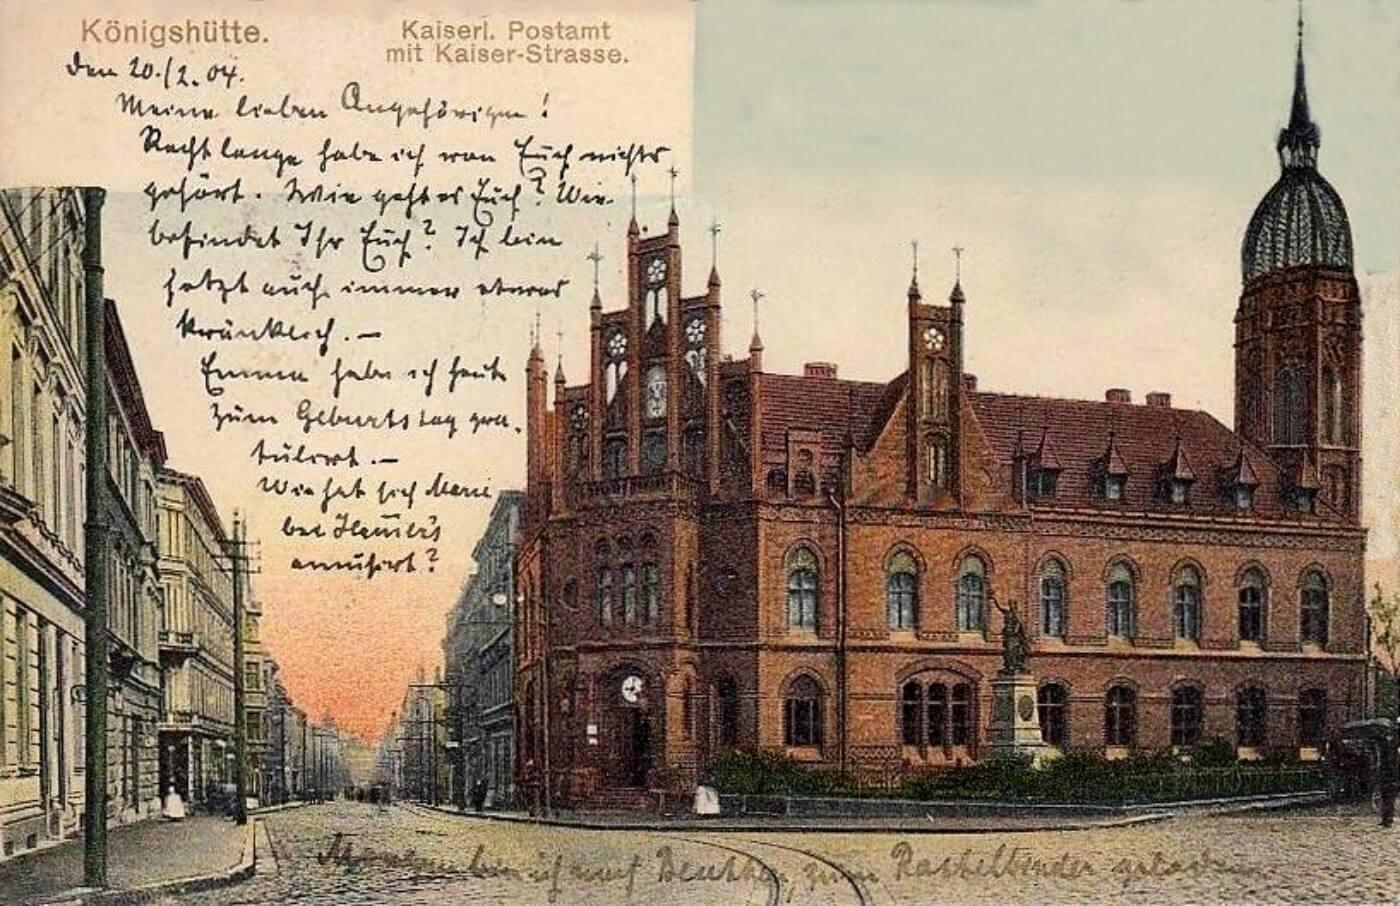 Königshütte.
Kaiserl. Postamt
mit Kaiser-Strasse.
den 20./2. 04.
Meine lieben Angehörigen!
Recht lange habe ich von Euch nichts
gehört. Wie geht es Euch? Wie
befindet Ihr Euch? Ich bin
jetzt auch immer etwas
kränklich. —
Emma habe ich heute
zum Geburtstag gra-
tuliert. —
Wie hat sich Marie
bei
amüsiert?
Morgen bin ich nach Beuthen zum Rastelbinder geladen